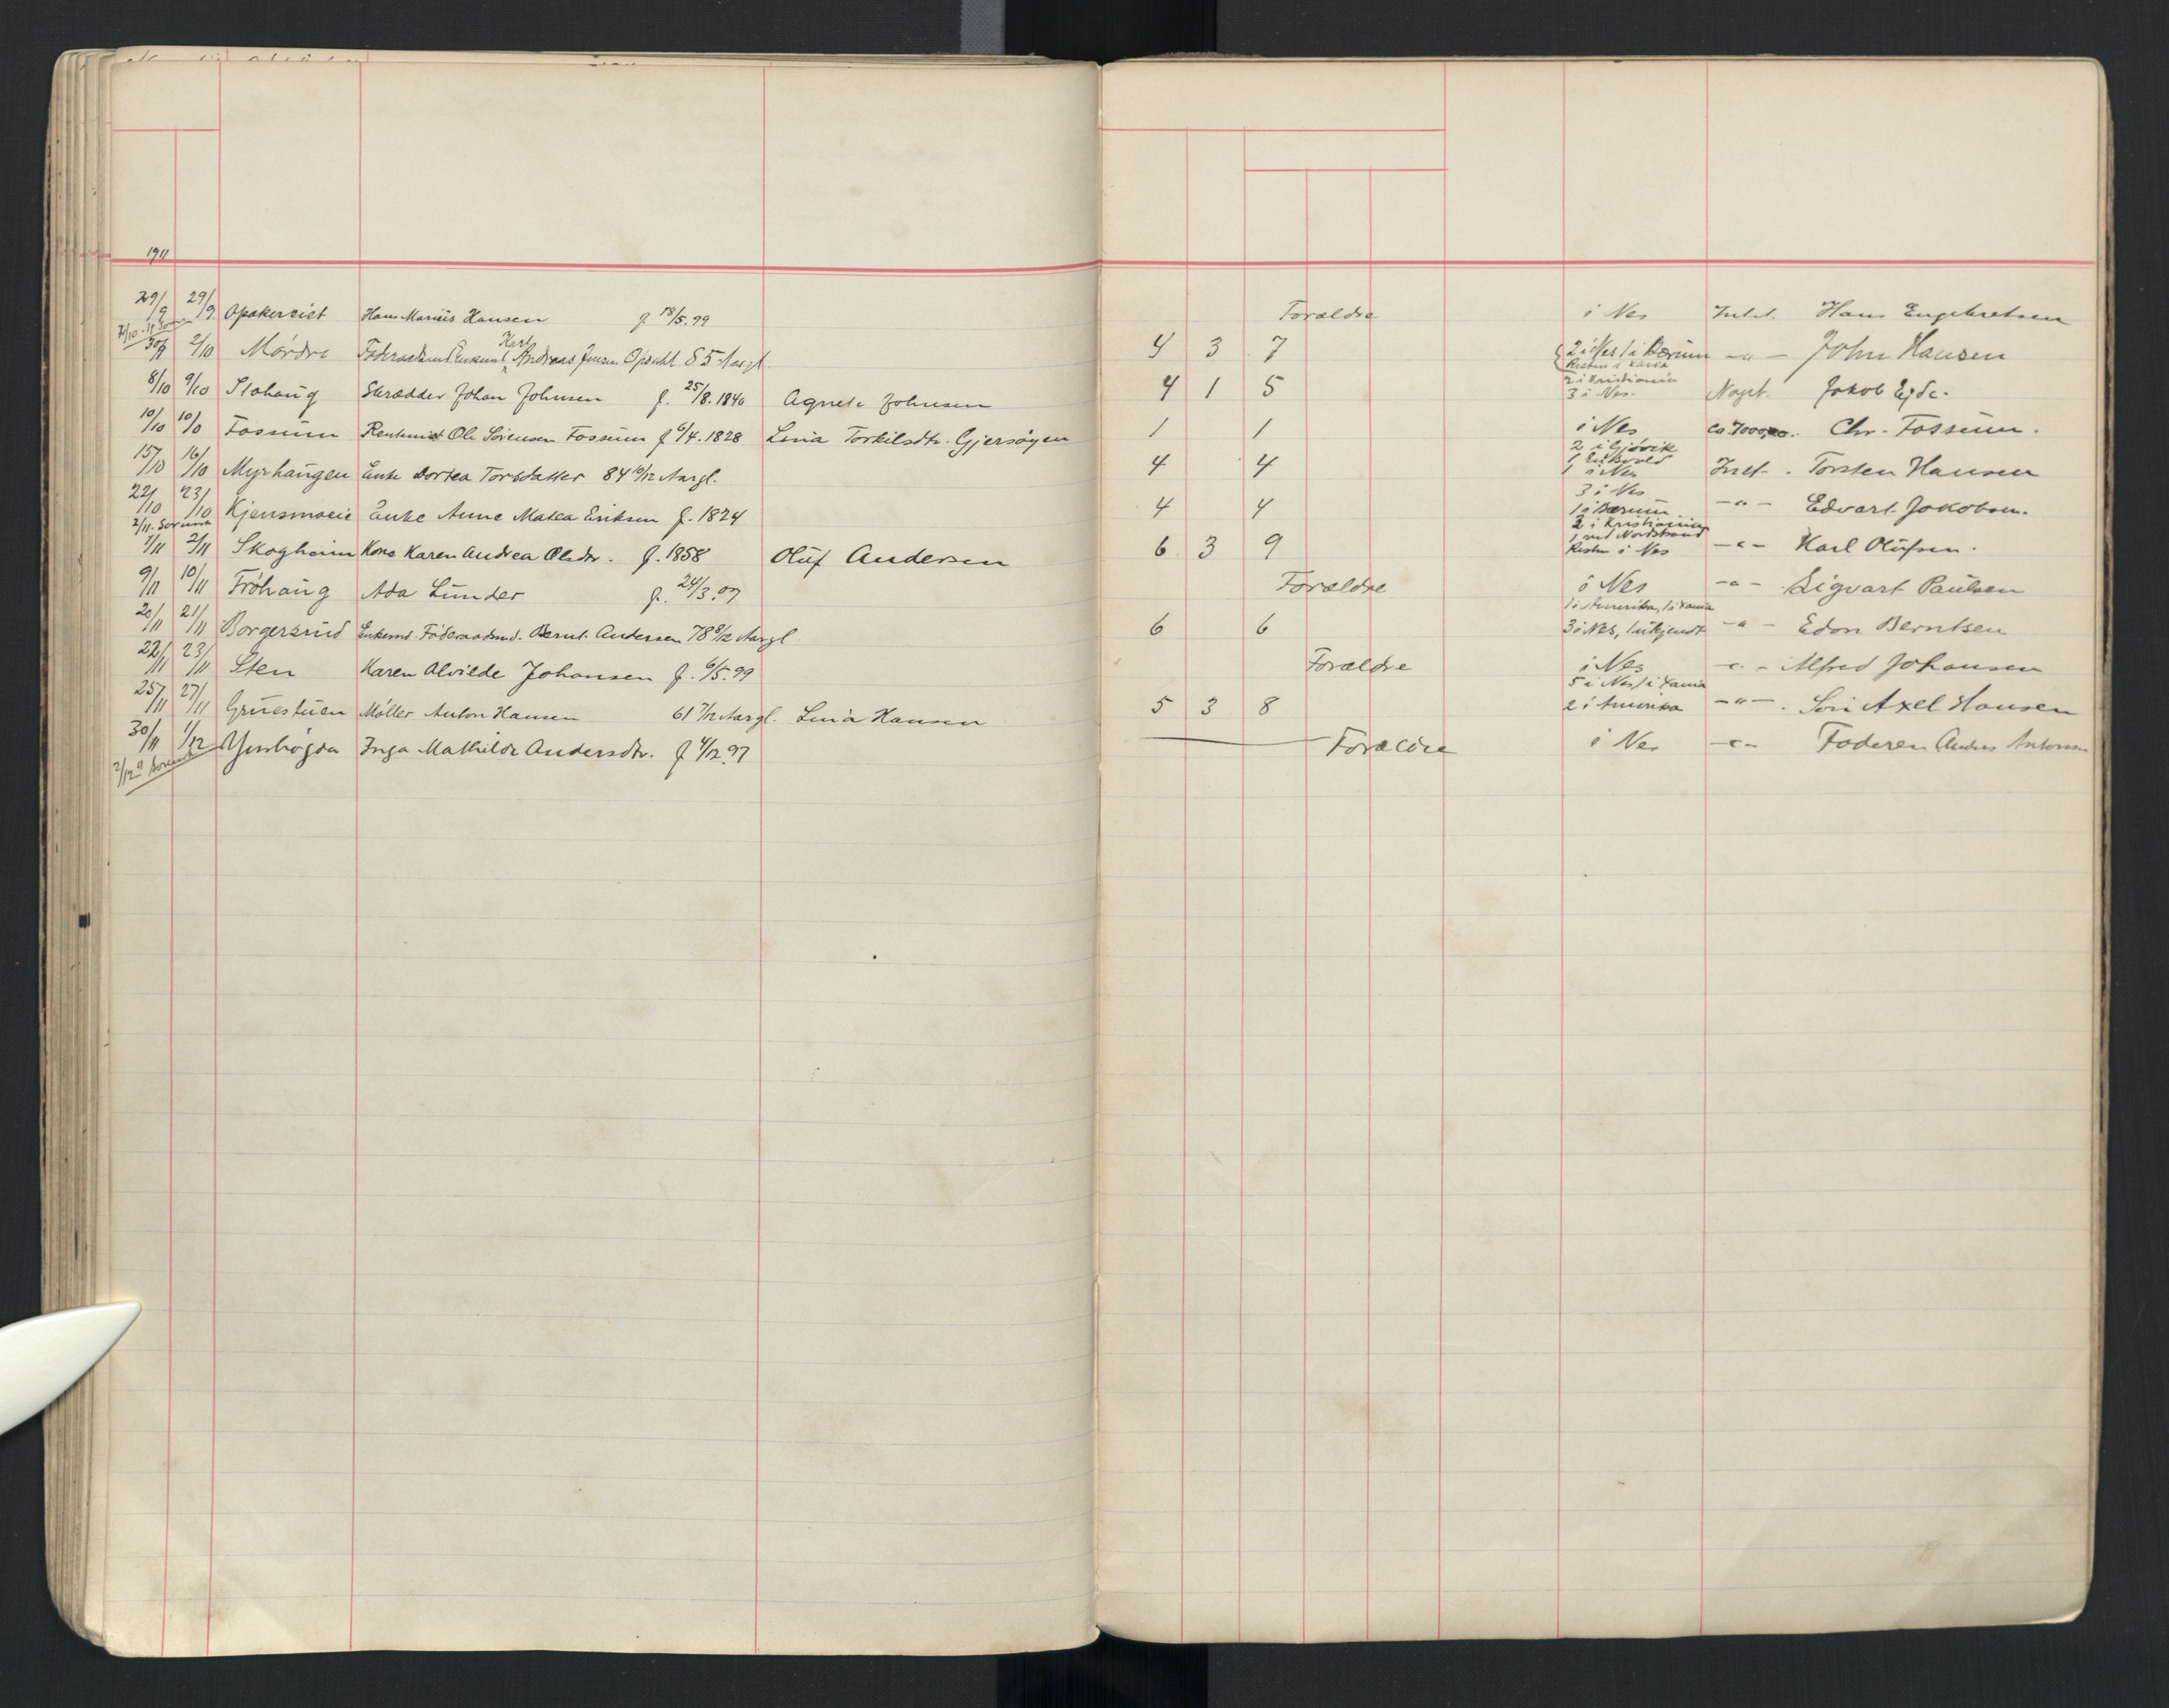 1911
29/9 29/9 Opakerviet Hans Marius Hansen f. 18/5.99 Forældre i Nes Intet. Hans Engebretsen
30/9 2/10 Mordre Enkem. Karl Andreas Jensen Opsahl 85 Aargl. 4 3 7 2 i Nes 1 i Bærum -"- John Hansen
8/10 9/10 Stohaug Skrædder Johan Johnsen f. 25/8.1840 Agnete Johnsen 4 1 5 2 i Kristiania 3 i Nes. Noget. Jakob Ejde.
10/10 10/10 Fossum Rentenist Ole Sørensen Fossum f 6/4.1828 Lina Torkilsdtr. Gjersøyen 1 1 i Nes ca 7000,00. Chr. Fossum.
15/10 16/10 Myrhaugen Enke Dortea Torsdatter 84 10/12 Aargl. 4 4 2 i Gjøvik 1 Eidsvold 1 i Nes Intet. Torsten Hansen
22/10 23/10 Kjensmoeie Enke Anne Matea Eriksen f. 1824 4 4 3 i Nes 1 i Bærum -"- Edvart Jakobsen.
2/11 Skogheim Kone Karen Andrea Olsdtr. f. 1858 Oluf Andersen 6 3 9 2 i Kristiania 1 ved Nordstrand Resten i Nes -"- Karl Olufsen.
9/11 10/11 Frøhaug Ada Lunder f. 24/3.07 Forældre i Nes -"- Sigvart Paulsen
20/11 21/11 Borgersrud Enkemd. Føderaadsmd. Bernt Andersen 78 8/12 Aargl. 6 6 1 i Amerika, 1 i Vania 3 i Nes, 1 ukjendt -"- Edon Berntsen
22/11 23/11 Sten Karen Alvilde Johansen f. 6/5.99 Forældre i Nes -"- Alfred Johansen
25/11 27/11 Gruestuen Møller Anton Hansen 61 7/12 Aargl. Lina Hansen 5 3 8 5 i Nes, 1 i Vania 2 i Amerika -"-. Søn Axel Hansen
30/11 1/12 Inga Mathilde Andersdtr. f 4/12.97 Forældre i Nes -"- Faderen Anders Antonsen